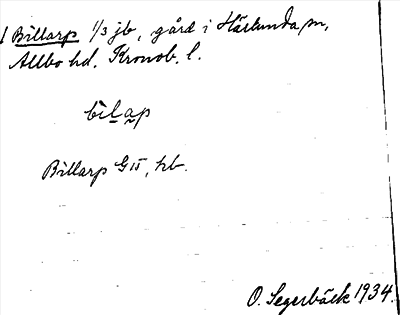 1 Billarp 1/3 jb, gård i Härlunda sn,
Allbo hd. Kronob. l.
bilap
Billarp G 15, hb.
O. Segerbäck 1934.